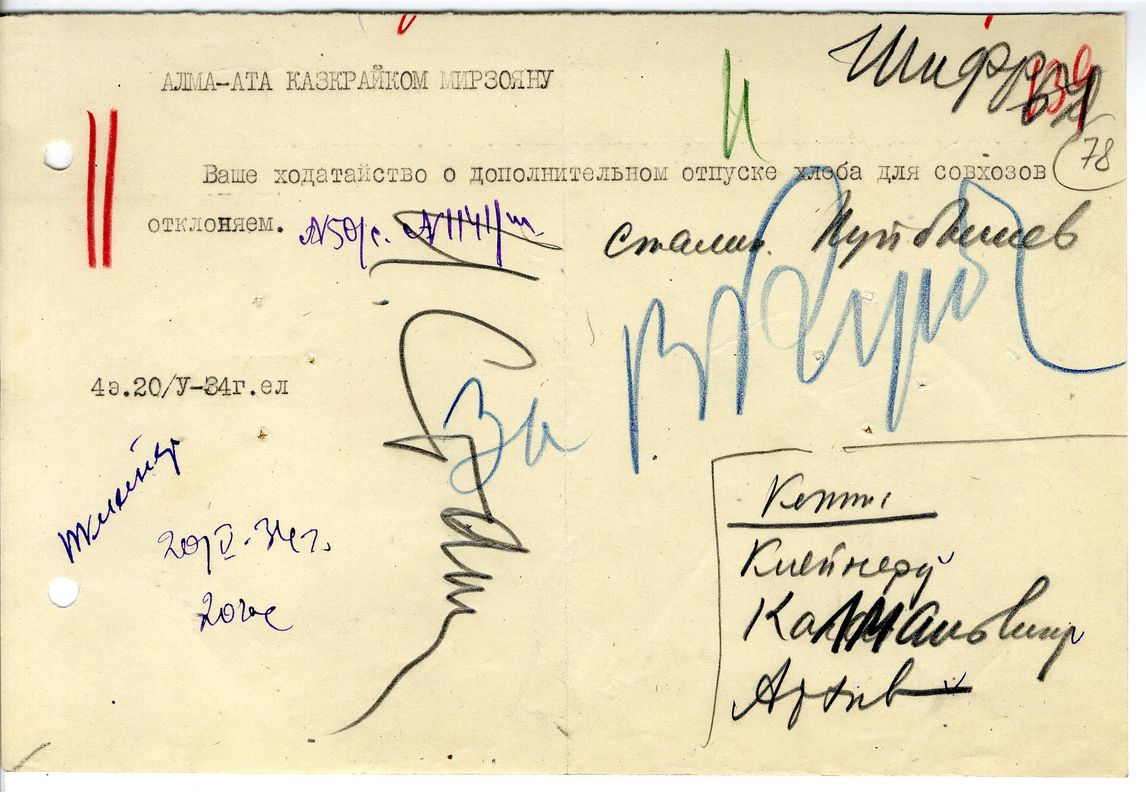 Шифр
78
АЛМА-АТА КАЗКРАЙКОМ МИРЗОЯНУ
Ваше ходатайство о дополнительном отпуске хлеба для совхозов
отклоняем. №50/с. №1141/ш. Сталин. Куйбышев
И. Сталин
За В Куйб
4э.20/У-34г.ел
20/V-34г.
Копии
Клейнеру
Калмановичу
Архив